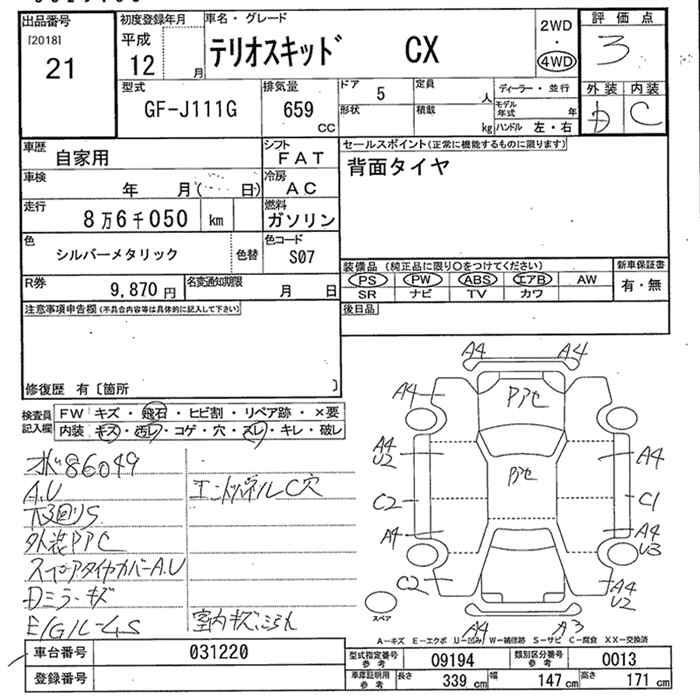 出品番号
[2018]
21
初度登録年月
平成
12 月
車名・グレード
テリオスキッド CX
2WD
・
4WD
評価点
3
外装 内装
D C
型式
GF-J111G
排気量
659
CC
ドア 5
形状
定員 人
積載 kg
ディーラー・並行
モデル年式 年
ハンドル 左・右
車歴
自家用
シフト
FAT
車検
年 月( 日)
冷房
AC
走行
8万6千050 km
燃料
ガソリン
色
シルバーメタリック
色替
色コード
S07
R券
9,870 円
名変通知期限
月 日
セールスポイント(正常に機能するものに限ります)
背面タイヤ
装備品(純正品に限り○をつけてください)
PS PW ABS エアB AW
SR ナビ TV カワ
新車保証書
有・無
後日品
注意事項申告欄(不具合内容等は具体的に記入して下さい)
修復歴 有〔箇所 〕
検査員
記入欄
FW キズ・飛石・ヒビ割・リペア跡・×要
内装 キズ・汚レ・コゲ・穴・スレ・キレ・破レ
86049
A.U
下回りS
外装PPC
スペアタイヤカバーA.U
Dミラーキズ
E/G/L-4S
エンドパネルC穴
A4 A4
A4
Pアセ
A4
U2
Pアセ
A4
C2
C1
A4
A4
U3
C2
A4
U2
スペア
A4 A3
A-キズ E-エクボ U-凹み W-補修跡 S-サビ C-腐食 XX-交換済
車台番号 031220
登録番号
型式指定番号
参考
09194
類別区分番号
参考
0013
車庫証明用
参考
長さ 339 cm 幅 147 cm 高さ 171 cm